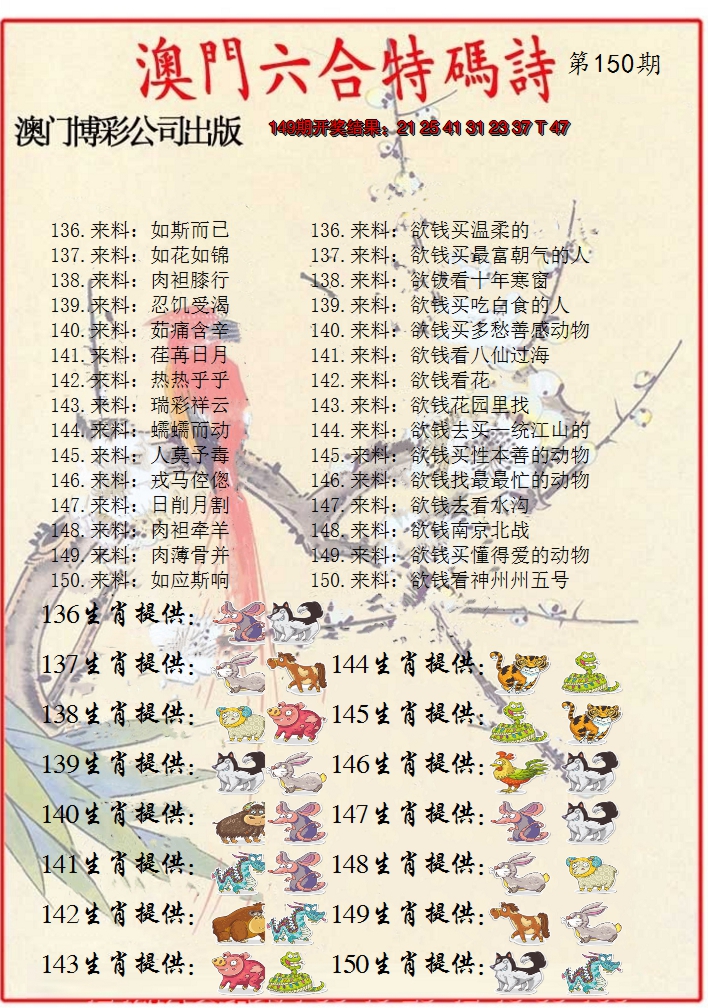 澳門六合特碼詩 第150期
澳门博彩公司出版 149期开奖结果：21 25 41 31 23 37 T 47
136.来料：如斯而已 136.来料：欲钱买温柔的
137.来料：如花如锦 137.来料：欲钱买最富朝气的人
138.来料：肉袒膝行 138.来料：欲钱看十年寒窗
139.来料：忍饥受渴 139.来料：欲钱买吃白食的人
140.来料：茹痛含辛 140.来料：欲钱买多愁善感动物
141.来料：荏苒日月 141.来料：欲钱看八仙过海
142.来料：热热乎乎 142.来料：欲钱看花
143.来料：瑞彩祥云 143.来料：欲钱花园里找
144.来料：蠕蠕而动 144.来料：欲钱去买一统江山的
145.来料：人莫予毒 145.来料：欲钱买性本善的动物
146.来料：戎马倥偬 146.来料：欲钱找最最忙的动物
147.来料：日削月割 147.来料：欲钱去看水沟
148.来料：肉袒牵羊 148.来料：欲钱南京北战
149.来料：肉薄骨并 149.来料：欲钱买懂得爱的动物
150.来料：如应斯响 150.来料：欲钱看神州州五号
136生肖提供：
137生肖提供： 144生肖提供：
138生肖提供： 145生肖提供：
139生肖提供： 146生肖提供：
140生肖提供： 147生肖提供：
141生肖提供： 148生肖提供：
142生肖提供： 149生肖提供：
143生肖提供： 150生肖提供：